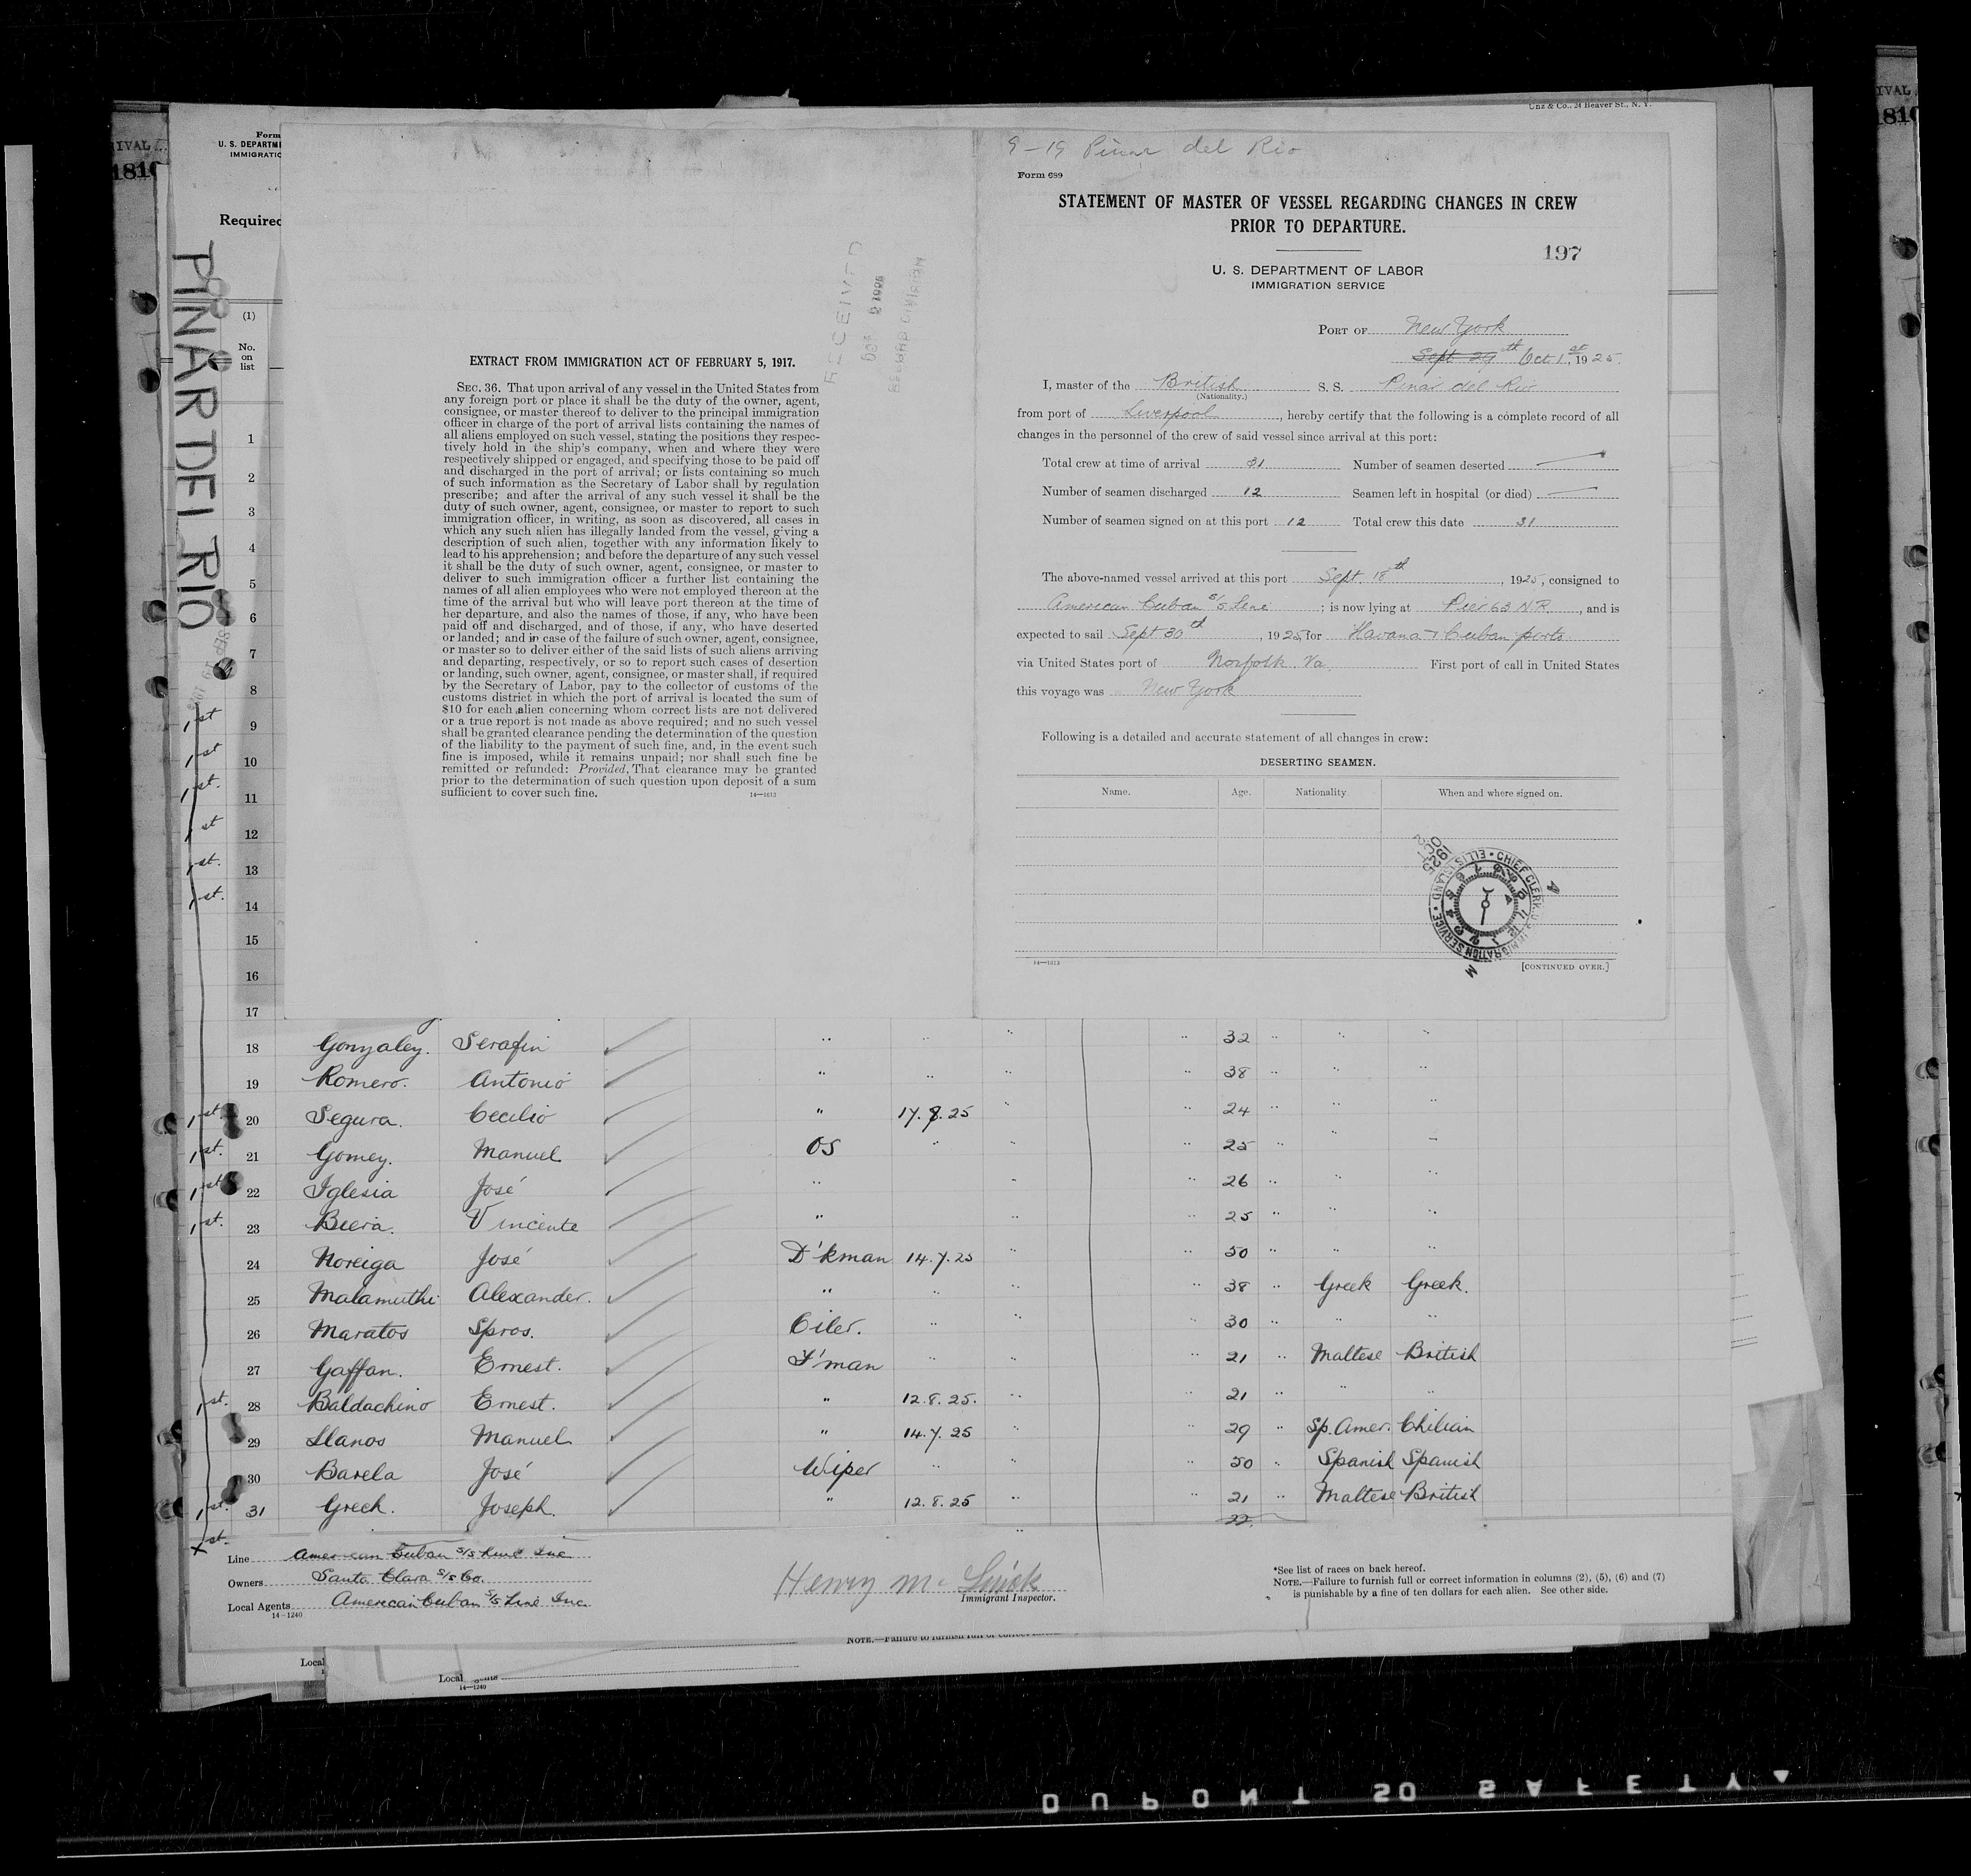 Unz & Co., 24 Beaver St., N. Y.
IVAL
1810
Form
U. S. DEPARTM
IMMIGRATIO
Required
PINAR DEL RIO
(1)
No.
on
list
1
2
3
4
5
6
7
8
1st 9
1st 10
1st. 11
1st 12
1st. 13
1st. 14
15
16
17
RECEIVED
EXTRACT FROM IMMIGRATION ACT OF FEBRUARY 5, 1917.
SEC. 36. That upon arrival of any vessel in the United States from
any foreign port or place it shall be the duty of the owner, agent,
consignee, or master thereof to deliver to the principal immigration
officer in charge of the port of arrival lists containing the names of
all aliens employed on such vessel, stating the positions they respec-
tively hold in the ship's company, when and where they were
respectively shipped or engaged, and specifying those to be paid off
and discharged in the port of arrival; or lists containing so much
of such information as the Secretary of Labor shall by regulation
prescribe; and after the arrival of any such vessel it shall be the
duty of such owner, agent, consignee, or master to report to such
immigration officer, in writing, as soon as discovered, all cases in
which any such alien has illegally landed from the vessel, giving a
description of such alien, together with any information likely to
lead to his apprehension; and before the departure of any such vessel
it shall be the duty of such owner, agent, consignee, or master to
deliver to such immigration officer a further list containing the
names of all alien employees who were not employed thereon at the
time of the arrival but who will leave port thereon at the time of
her departure, and also the names of those, if any, who have been
paid off and discharged, and of those, if any, who have deserted
or landed; and in case of the failure of such owner, agent, consignee,
or master so to deliver either of the said lists of such aliens arriving
and departing, respectively, or so to report such cases of desertion
or landing, such owner, agent, consignee, or master shall, if required
by the Secretary of Labor, pay to the collector of customs of the
customs district in which the port of arrival is located the sum of
$10 for each alien concerning whom correct lists are not delivered
or a true report is not made as above required; and no such vessel
shall be granted clearance pending the determination of the question
of the liability to the payment of such fine, and, in the event such
fine is imposed, while it remains unpaid; nor shall such fine be
remitted or refunded: Provided, That clearance may be granted
prior to the determination of such question upon deposit of a sum
sufficient to cover such fine.
14—1613
9-19 Pinar del Rio
Form 689
STATEMENT OF MASTER OF VESSEL REGARDING CHANGES IN CREW
PRIOR TO DEPARTURE.
197
U. S. DEPARTMENT OF LABOR
IMMIGRATION SERVICE
PORT OF New York
Sept 29th Oct 1st, 1925.
I, master of the British S. S. Pinar del Rio
(Nationality.)
from port of Liverpool, hereby certify that the following is a complete record of all
changes in the personnel of the crew of said vessel since arrival at this port:
Total crew at time of arrival 31 Number of seamen deserted —
Number of seamen discharged 12 Seamen left in hospital (or died) —
Number of seamen signed on at this port 12 Total crew this date 31
The above-named vessel arrived at this port Sept. 18th, 1925, consigned to
American Cuban S/S Line; is now lying at Pier 63 N R, and is
expected to sail Sept 30th, 1925, for Havana + Cuban ports
via United States port of Norfolk. Va. First port of call in United States
this voyage was New York
Following is a detailed and accurate statement of all changes in crew:
DESERTING SEAMEN.
Name. Age. Nationality. When and where signed on.
OCT 1925
CHIEF CLERK, U.S. IMMIGRATION SERVICE • ELLIS ISLAND •
14—1613
[CONTINUED OVER.]
18 Gonzalez. Serafin " " " " 32 " " "
19 Romero. Antonio " " " " 38 " " "
1st. 20 Segura. Cecilio " 17.8.25 " " 24 " " "
1st. 21 Gomez. Manuel OS " " " 25 " " "
1st 22 Iglesia José " " " 26 " " "
1st. 23 Vincente " " " 25 " " "
24 Noreiga José D'kman 14.7.25 " " 50 " " "
25 Malamuthi Alexander. " " " " 38 " Greek Greek.
26 Maratos Spros. Oiler. " " " 30 " " "
27 Gaffan. Ernest. F'man " " " 21 " Maltese British
1st. 28 Baldachino Ernest. " 12.8.25. " " 21 " " "
29 Llanos Manuel " 14.7.25 " " 29 " Sp. Amer. Chilian
30 Barela José Wiper " " " 50 " Spanish Spanish
1st. 31 Grech. Joseph. " 12.8.25 " " 21 " Maltese British
22
Line American Cuban S/S Line Inc
Owners Santa Clara S/S Co.
Local Agents American Cuban S/S Line Inc.
14—1240
Henry Mc
Immigrant Inspector.
*See list of races on back hereof.
NOTE.—Failure to furnish full or correct information in columns (2), (5), (6) and (7)
is punishable by a fine of ten dollars for each alien. See other side.
Local
Local
14—1240
DUPONT SAFETY